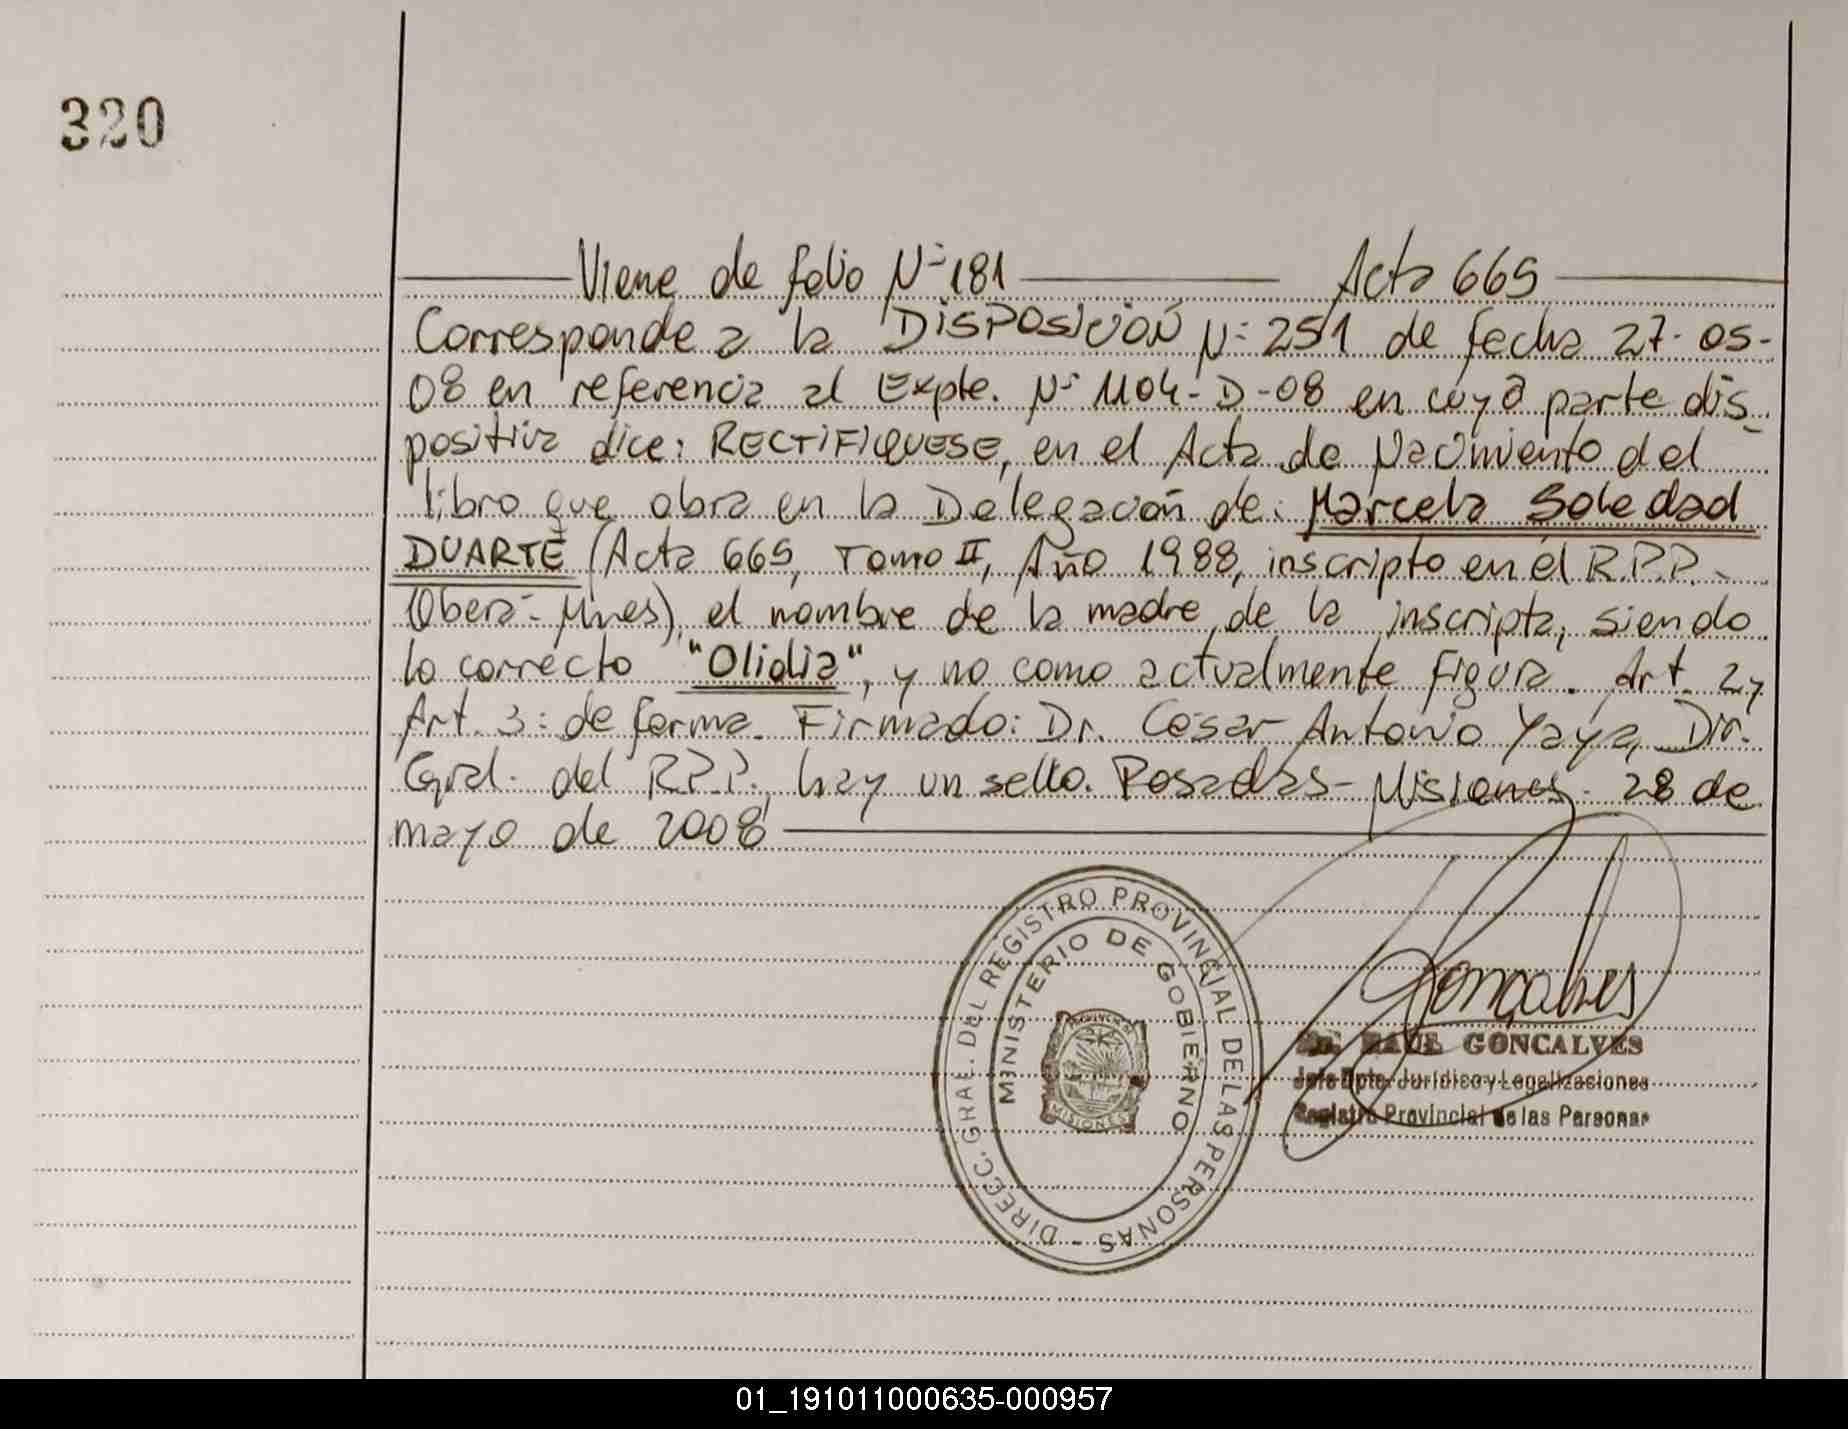 320
Viene de folio Nº 181 Acta 665
Corresponde a la DISPOSICIÓN Nº 251 de fecha 27-05-
08 en referencia al Expte. Nº 1104-D-08 en cuya parte dis-
positiva dice: RECTIFIQUESE, en el Acta de Nacimiento del
libro que obra en la Delegación de: Marcela Soledad
DUARTE (Acta 665, Tomo II, Año 1988, inscripto en el R.P.P. -
Oberá - Mnes), el nombre de la madre de la inscripta, siendo
lo correcto "Olidia", y no como actualmente figura. Art. 2 y
Art. 3: de forma. Firmado: Dr. César Antonio Yaya, Dir.
Gral. del R.P.P., hay un sello. Posadas - Misiones - 28 de
mayo de 2008
DIRECC. GRAL. DEL REGISTRO PROVINCIAL DE LAS PERSONAS -
MINISTERIO DE GOBIERNO
PROVINCIA DE
MISIONES
Goncalves
RAUL GONCALVES
Jefe Dpto. Jurídico y Legalizaciones
Registro Provincial de las Personas
01_191011000635-000957